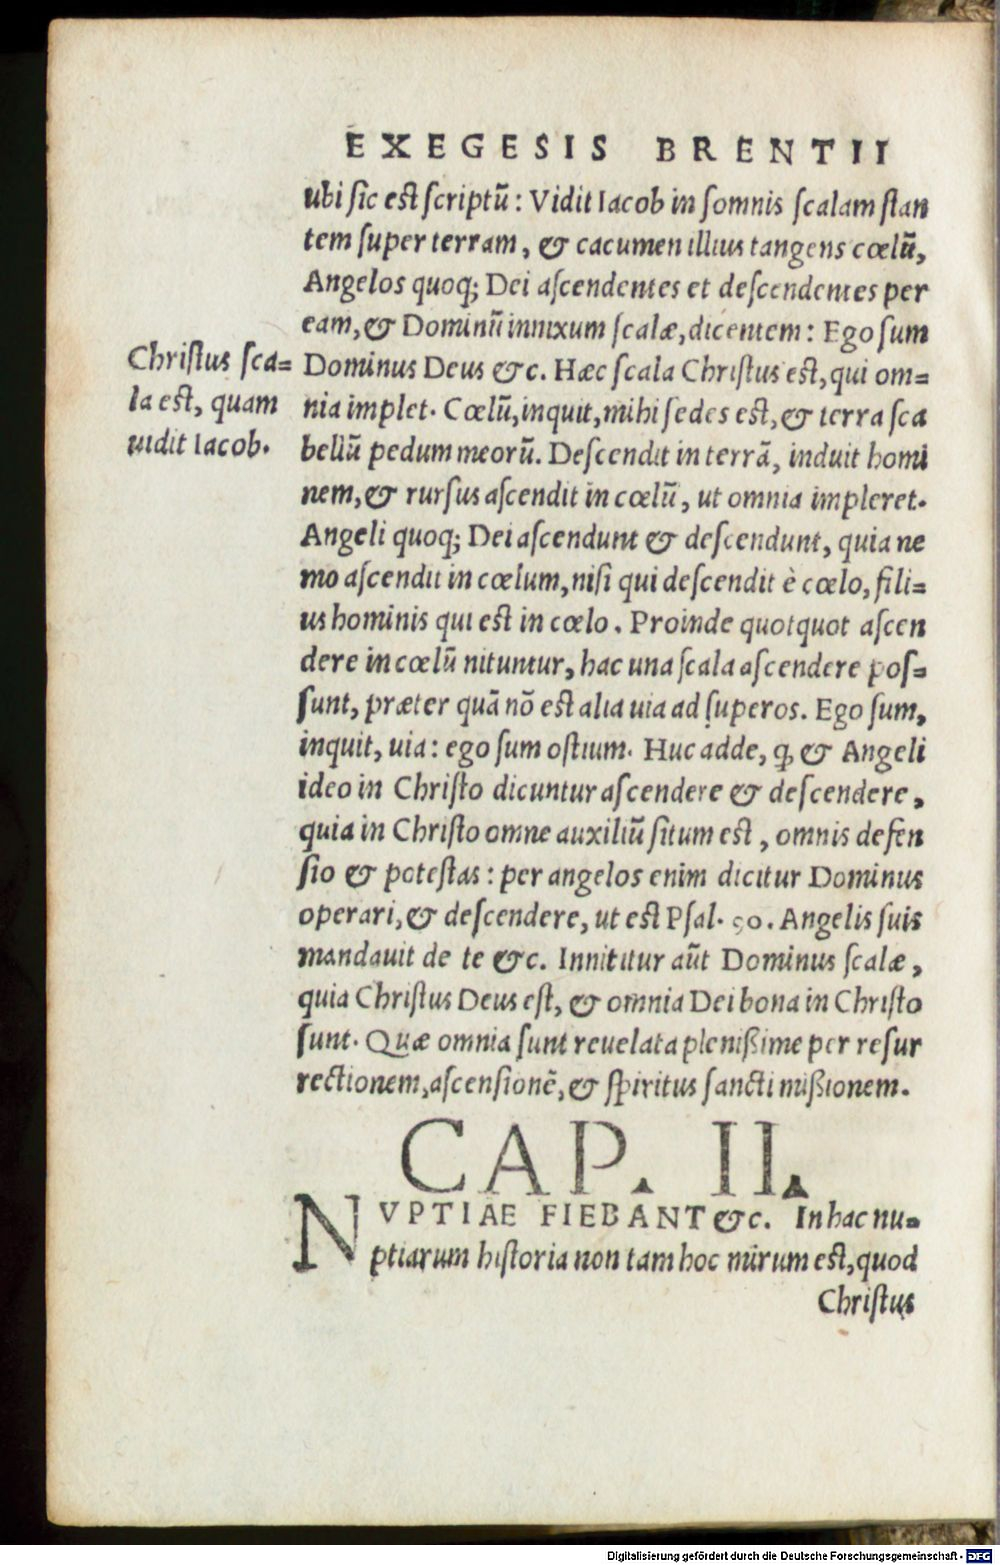 EXEGESIS BRENTII
ubi ſic eſt ſcriptū: Vidit Iacob in ſomnis ſcalam ſtan
tem ſuper terram, & cacumen illius tangens cœlū,
Angelos quoq; Dei aſcendentes et deſcendentes per
eam, & Dominū innixum ſcalæ, dicentem: Ego ſum
Dominus Deus &c. Hæc ſcala Chriſtus eſt, qui om=
nia implet. Cœlū, inquit, mihi ſedes eſt, & terra ſca
bellū pedum meorū. Deſcendit in terrā, induit homi
nem, & rurſus aſcendit in cœlū, ut omnia impleret.
Angeli quoq; Dei aſcendunt & deſcendunt, quia ne
mo aſcendit in cœlum, niſi qui deſcendit è cœlo, fili=
us hominis qui eſt in cœlo. Proinde quotquot aſcen
dere in cœlū nituntur, hac una ſcala aſcendere poſ=
ſunt, præter quā nō eſt alia uia ad ſuperos. Ego ſum,
inquit, uia: ego ſum oſtium. Huc adde, ꝙ & Angeli
ideo in Chriſto dicuntur aſcendere & deſcendere,
quia in Chriſto omne auxiliū ſitum eſt, omnis defen
ſio & poteſtas: per angelos enim dicitur Dominus
operari, & deſcendere, ut eſt Pſal. 90. Angelis ſuis
mandauit de te &c. Innititur aūt Dominus ſcalæ,
quia Chriſtus Deus eſt, & omnia Dei bona in Chriſto
ſunt. Quæ omnia ſunt reuelata pleniſſime per reſur
rectionem, aſcenſionē, & ſpiritus ſancti miſſionem.
Chriſtus ſca=
la eſt, quam
uidit Iacob.
CAP. II.
NVPTIAE FIEBANT &c. In hac nu=
ptiarum hiſtoria non tam hoc mirum eſt, quod
Chriſtus
Digitalisierung gefördert durch die Deutsche Forschungsgemeinschaft - DFG